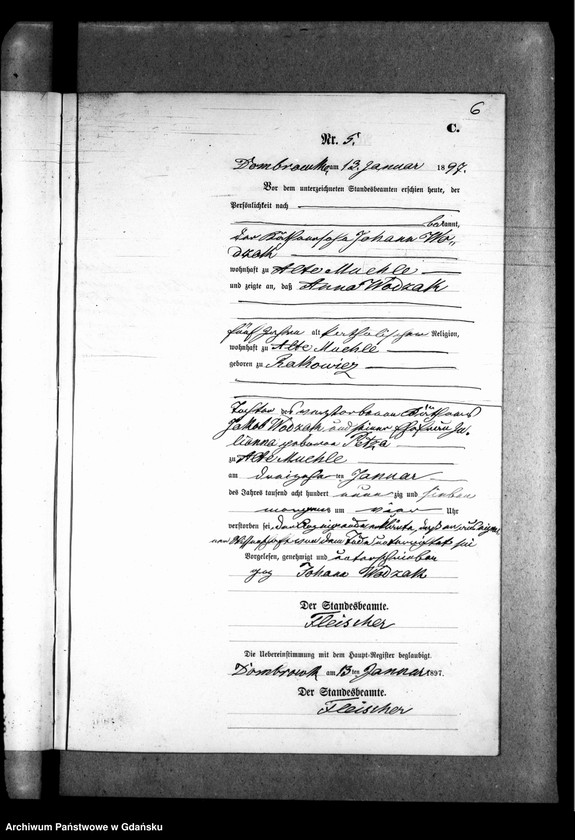 6
C.
Nr. 5.
Dombrowken am 13. Januar 1897.
Vor dem unterzeichneten Standesbeamten erschien heute, der
Persönlichkeit nach
bekannt,
der Johann Wo-
dzak
wohnhaft zu Alte Muehle
und zeigte an, daß Anna Wodzak
fünf Jahre alt katholischer Religion,
wohnhaft zu Alte Muehle
geboren zu Rakowiez
Tochter des verstorbenen
Jakob Wodzak und seiner Ehefrau Ju-
lianna geborene
zu Alte Muehle
am dreizehnten Januar
des Jahres tausend acht hundert neun zig und sieben
morgens um vier Uhr
verstorben sei, der Anzeigende erklärte, daß er aus eigener
Wissenschaft von dem Tode unterrichtet sei
Vorgelesen, genehmigt und unterschrieben
gez Johann Wodzak
Der Standesbeamte.
Fleischer
Die Uebereinstimmung mit dem Haupt-Register beglaubigt.
Dombrowk am 13ten Januar 1897.
Der Standesbeamte.
Fleischer
Archiwum Państwowe w Gdańsku